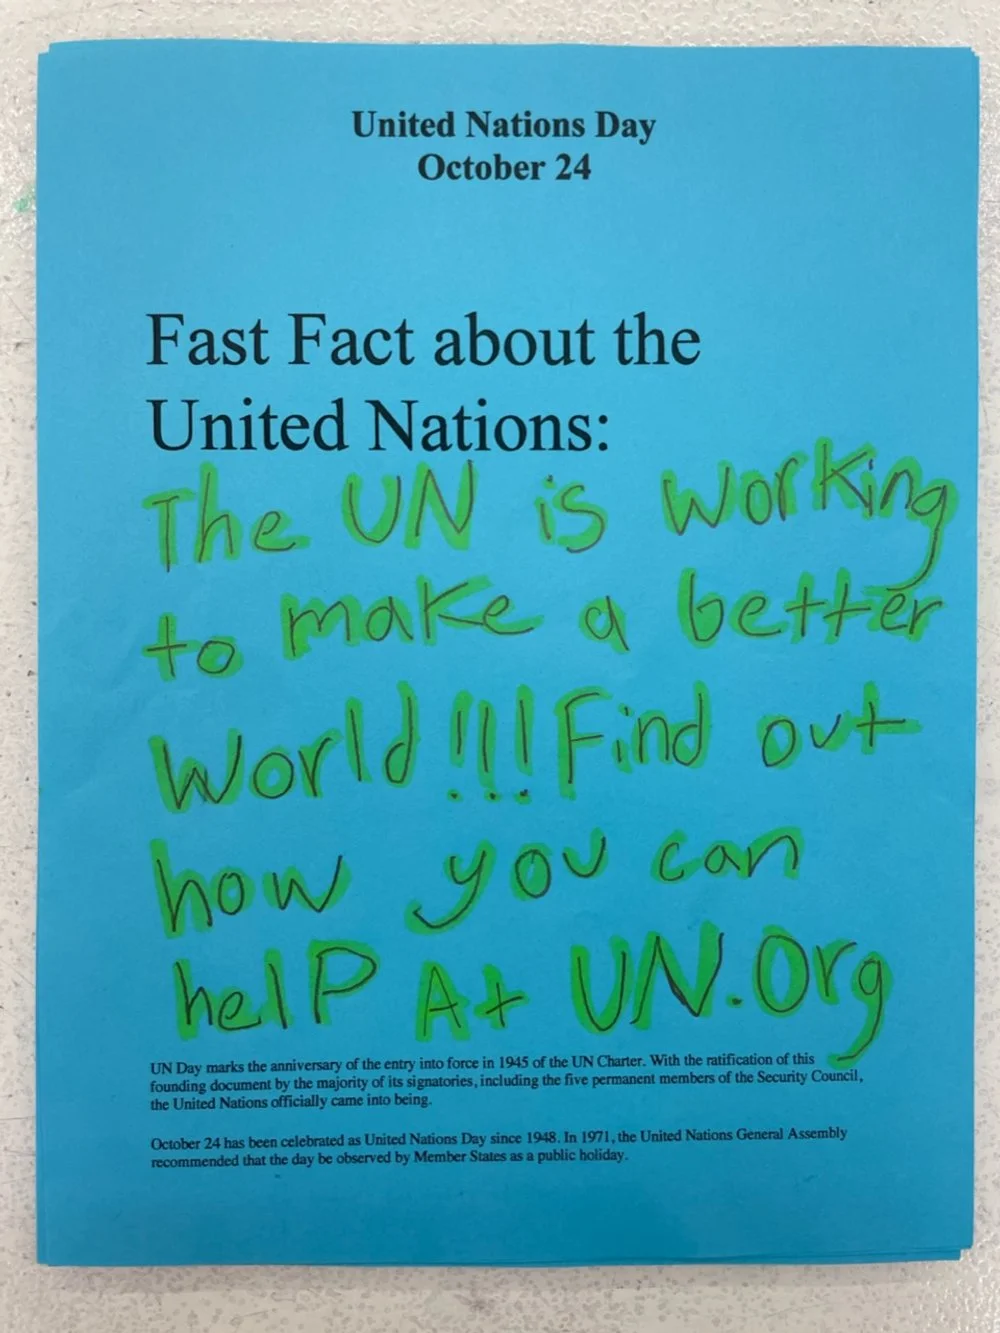 United Nations Day
October 24
Fast Fact about the
United Nations:
The UN is working
to make a better
World!!! Find out
how you can
help At UN.Org
UN Day marks the anniversary of the entry into force in 1945 of the UN Charter. With the ratification of this
founding document by the majority of its signatories, including the five permanent members of the Security Council,
the United Nations officially came into being.
October 24 has been celebrated as United Nations Day since 1948. In 1971, the United Nations General Assembly
recommended that the day be observed by Member States as a public holiday.